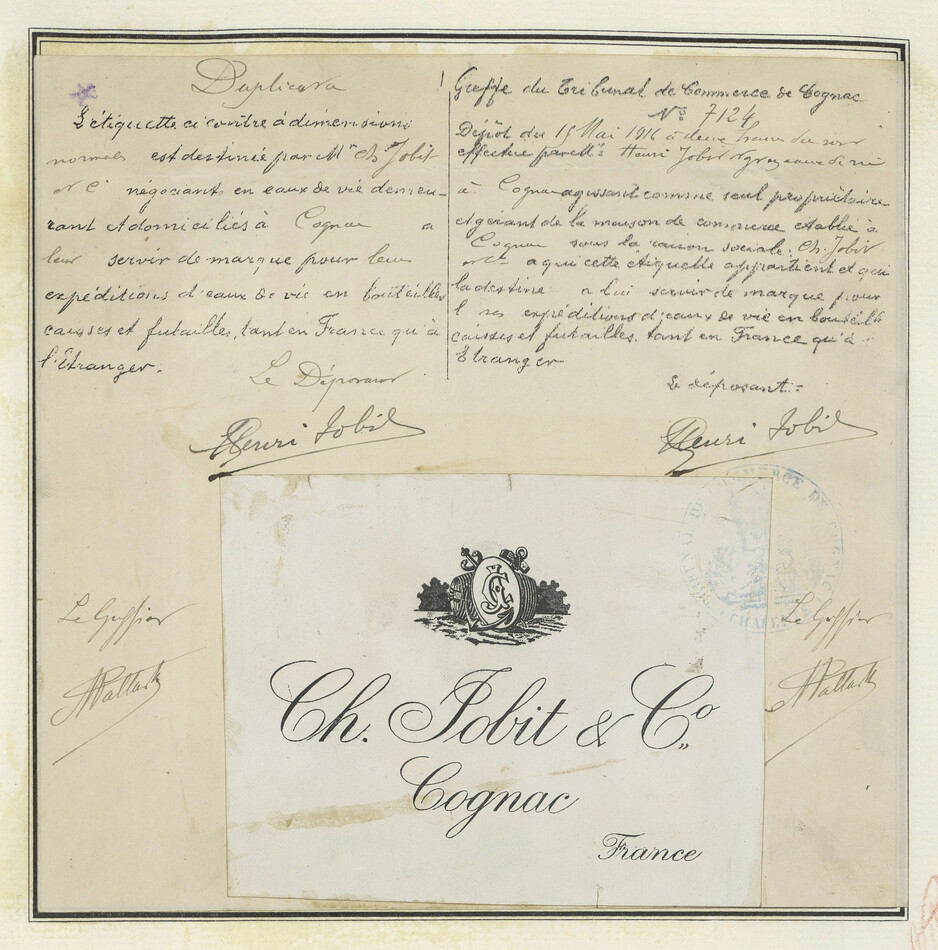 Duplicata
L'étiquette ci contre à dimensions
normales est destinée par Mrs Ch. Jobit
& Cie négociants en eaux de vie demeu-
rant et domiciliés à Cognac a
leur servir de marque pour leurs
expéditions d'eaux de vie en bouteilles
caisses et futailles, tant en France qu'à
l'Etranger.
Le Déposant
Henri Jobit
Greffe du Tribunal de Commerce de Cognac
No 7124
Dépôt du Mai 1916 à deux heures du soir
effectué par Henri Jobit
à Cognac agissant comme seul propriétaire
et gérant de la maison de commerce établie à
Cognac sous la raison sociale. Ch. Jobit
& Cie a qui cette étiquette appartient et qui
la destine a lui servir de marque pour
ses expéditions d'eaux de vie en bouteilles
caisses et futailles, tant en France qu'à
Etranger
Le déposant =
Henri Jobit
Le Greffier
Le Greffier
COMMERCE DE COGNAC
Ch. Jobit & Co
Cognac
France